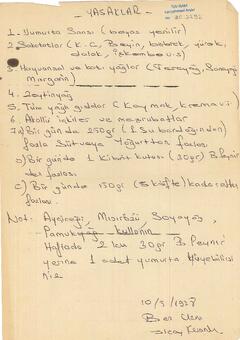 - YASAKLAR -
1- Yumurta Sarısı (beyazı yenilir)
2- Sakatatlar (K.C, Beyin, böbrek, yürek,
dalak, işkembe v.s)
3- Hayvansal ve katı yağlar (Tereyağ, Sanayağ
Margarin)
4. Zeytinyağ
5. Tüm yağlı gıdalar (Kaymak, krema v.s
6. Alkollü içkiler ve meşrubatlar
7- a) Bir günde 250gr (1 Su bardağından)
fazla Süt veya Yoğurttan fazlası
b) Bir günde 1 Kibrit kutusu (30gr) B.Peynir
den fazlası.
c) Bir günde 150gr (5 köfte) kadar etten
fazlası.
Not: Ayçiçeği, Mısırözü, Soyayağ,
Pamukyağı kullanın
Haftada 2 kere 30gr B.Peynir
yerine 1 adet yumurta yiyebilirsi
niz
10/5/1978